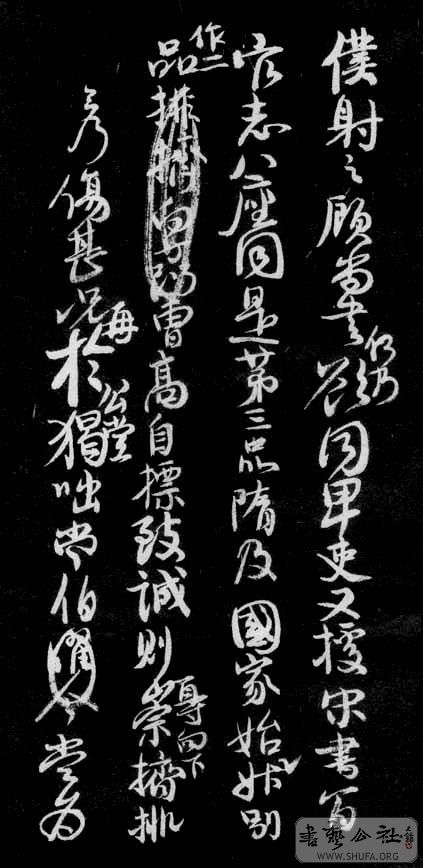 僕射之顧尚書何乃欲同卑吏又據宋書百
官志八座同是第三品隋及國家始升別
作二品高自標致誠則尊崇向下擠排
無乃傷甚況再於公堂猲咄常伯當為
書藝公社
WWW.SHUFA.ORG